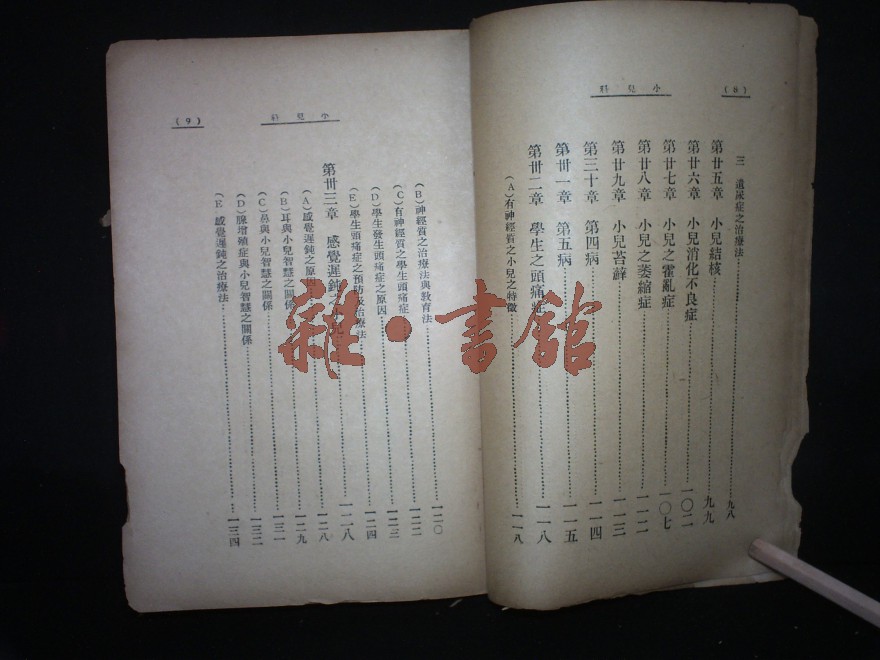 小兒科 (8)
三 遺尿症之治療法 九八
第廿五章 小兒結核 九九
第廿六章 小兒消化不良症 一〇二
第廿七章 小兒之霍亂症 一〇七
第廿八章 小兒之萎縮症 一一二
第廿九章 小兒苔蘚 一一三
第三十章 第四病 一一四
第卅一章 第五病 一一五
第卅二章 學生之頭痛症 一一八
(A)有神經質之小兒之特徵 一一八
小兒科 (9)
(B)神經質之治療法與教育法 一二〇
(C)有神經質之學生頭痛症 一二三
(D)學生發生頭痛症之原因 一二四
(E)學生頭痛症之預防及治療法 一二八
第卅三章 感覺遲鈍之小兒 一二八
(A)感覺遲鈍之原因 一二九
(B)耳與小兒智慧之關係 一三一
(C)鼻與小兒智慧之關係 一三二
(D)腺增殖症與小兒智慧之關係
(E)感覺遲鈍之治療法 一三四
雜·書館